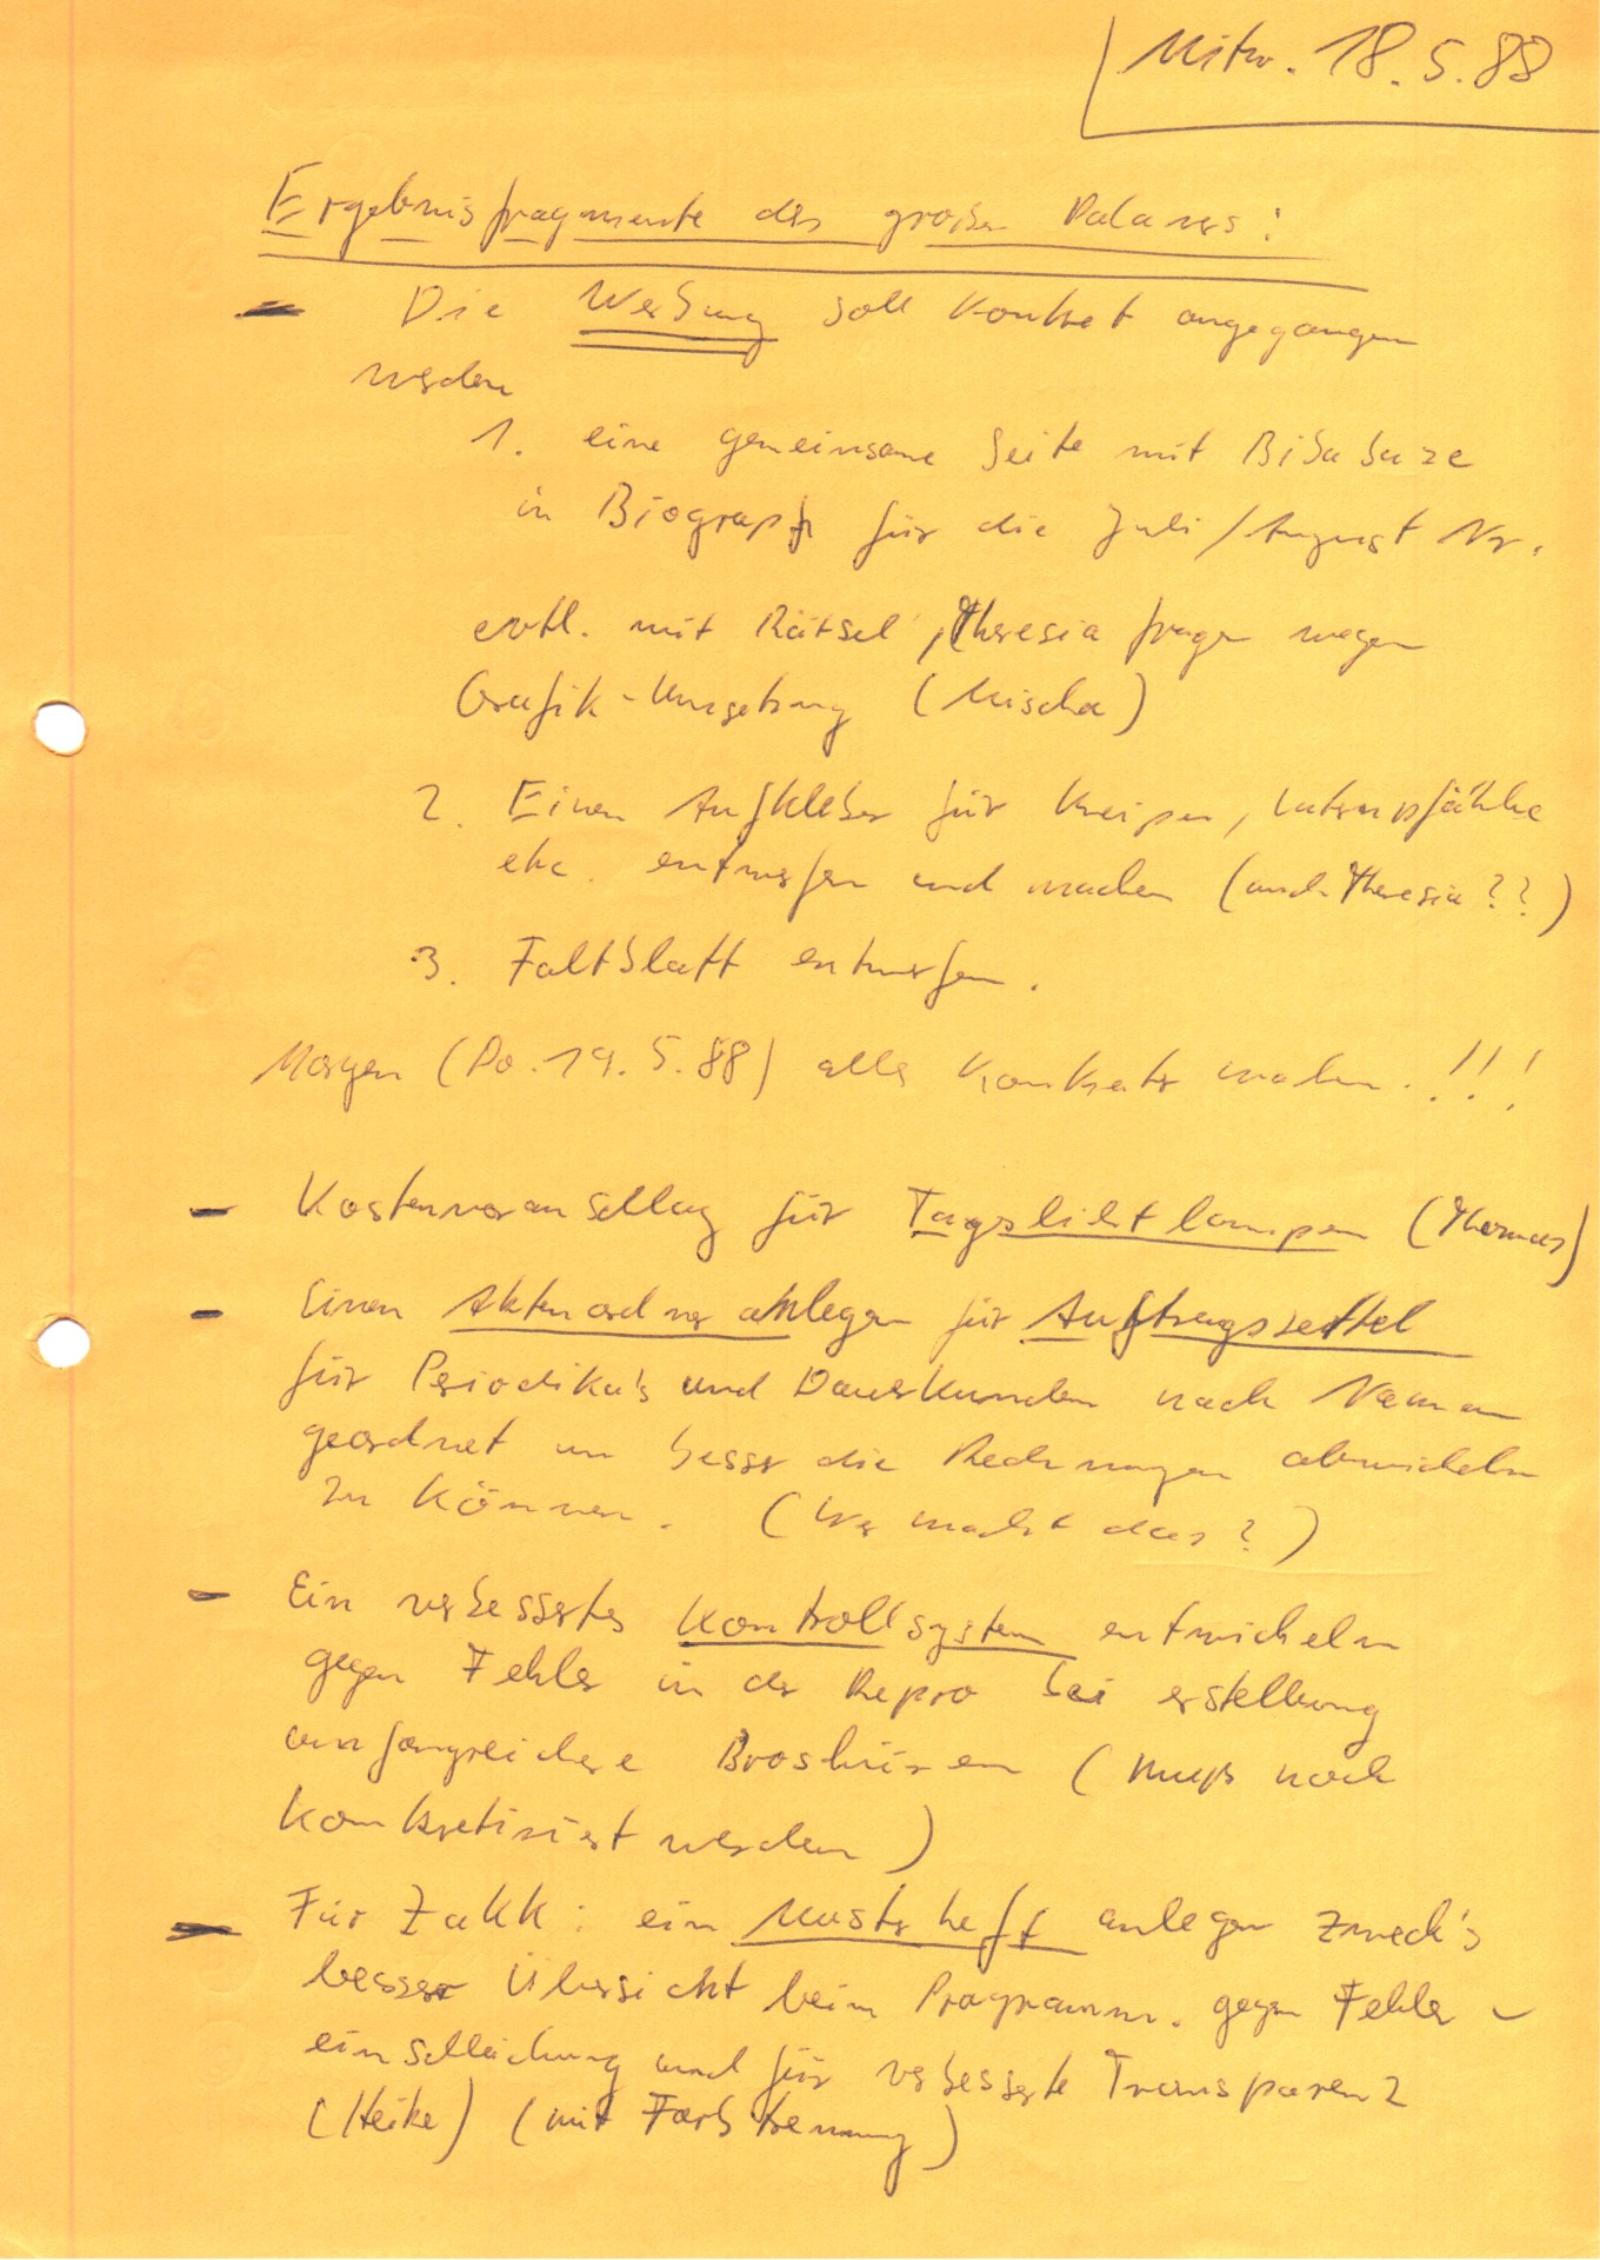 Mittw. 18.5.88
Ergebnisfragmente des großen Palavers:
– Die Werbung soll konkret angegangen
werden
1. eine gemeinsame Seite mit BiBaBuZe
in Biograph für die Juli/August Nr.
evtl. mit Rätsel, Theresia fragen wegen
Grafik-Umsetzung (Mischa)
2. Einen Aufkleber für Kneipen, Laternpfähle
etc. entwerfen und machen (auch Theresia??)
3. Faltblatt entwerfen.
Morgen (Do. 19.5.88) alles konkreter machen.!!!
– Kostenvoranschlag für Tageslichtlampen (Thomas)
– Einen Aktenordner anlegen für Auftragszettel
für Periodika's und Dauerkunden nach Namen
geordnet um besser die Rechnungen abwickeln
zu können. (Wer macht das?)
– Ein verbessertes Kontrollsystem entwickeln
gegen Fehler in der Repro bei erstellung
umfangreichere Broshüren (muß noch
konkretisiert werden)
– Für Zakk: ein Musterheft anlegen zweck's
besserer Übersicht beim Programm. gegen Fehler-
einschleichung und für verbesserte Transparenz
(Heike) (mit Farbtrennung)